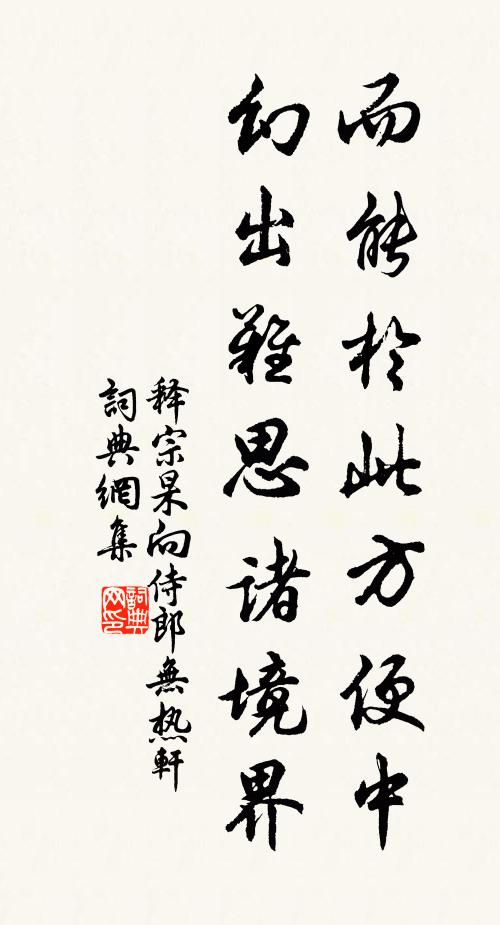 而能於此方便中
幻出難思諸境界
释宗杲向侍郎無热軒
詞典網集
詞典网印